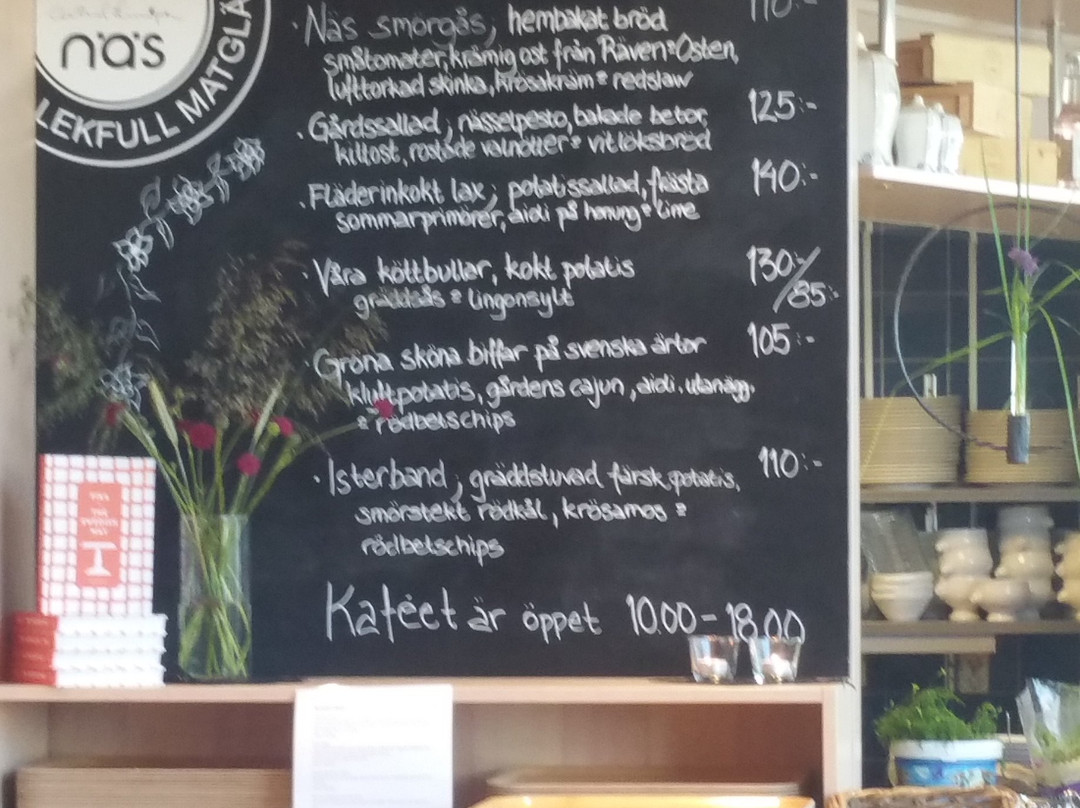 näs
LEKFULL MATGLÄ
Näs smörgås; hembakat bröd 110:-
småtomater, krämig ost från Räven & Osten,
lufttorkad skinka, krösakräm & redslaw
Gårdssallad; nässelpesto, bakade betor, 125:-
killost, rostade valnötter & vitlöksbröd
Fläderinkokt lax; potatissallad, frästa 140:-
sommarprimörer, aioli på honung & lime
Våra köttbullar, kokt potatis 130:-/85:-
gräddsås & lingonsylt
Gröna sköna biffar på svenska ärtor 105:-
kluftpotatis, gårdens cajun, aioli, utanägg,
& rödbetschips
Isterband; gräddstuvad färskpotatis, 110:-
smörstekt rödkål, krösamos &
rödbetschips
Kaféet är öppet 10.00-18.00